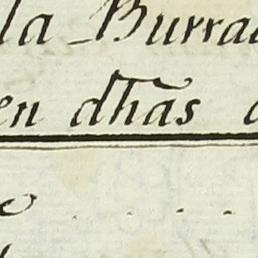 la Burra
en dhas